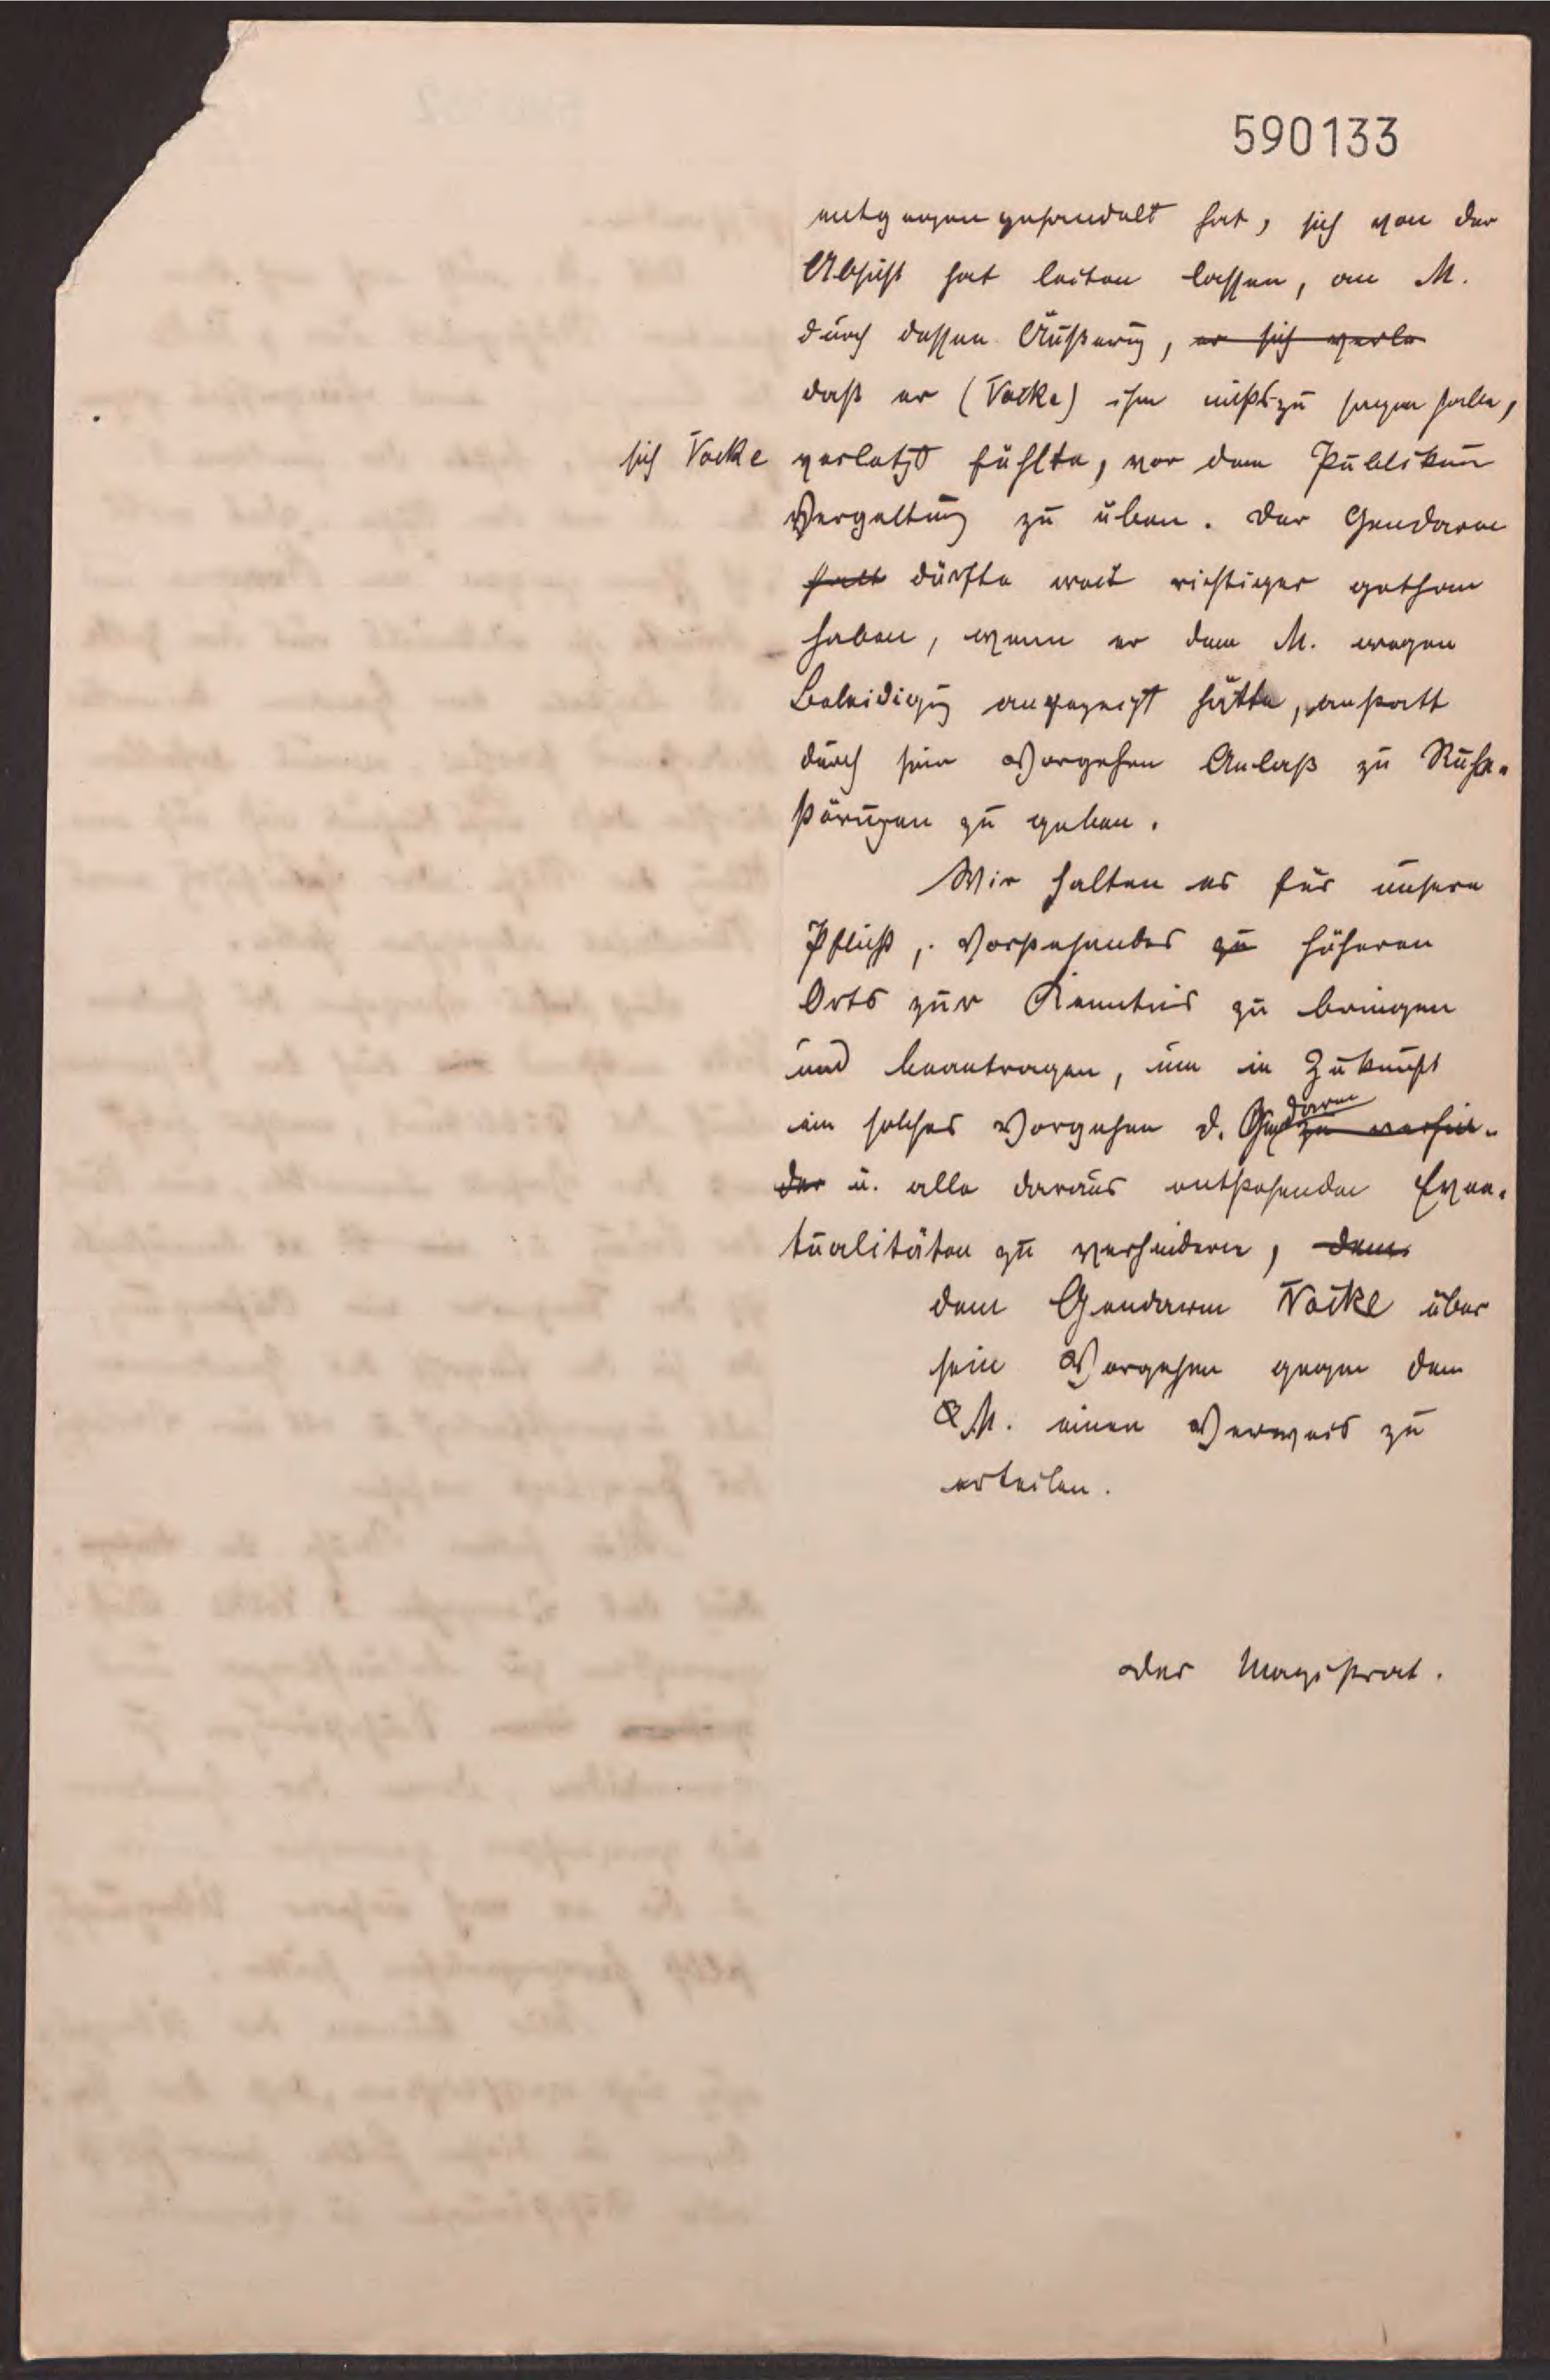 590133
entgegengehandelt hat, sich von der
Absicht hat leiten lassen, an M.
durch dessen Äußerung, er sich verle
daß er (Vocke) ihm nichts zu sagen habe,
sich Vocke verletzt fühlte, vor dem Publikum
Vergeltung zu üben. Der Gendarm
hatt dürfte weit richtiger gethan
haben, wenn er dem M. wegen
Beleidigung angezeigt hätte, anstatt
durch sein Vorgehen Anlaß zu Ruhe-
störungen zu geben.
Wir halten es für unsere
Pflicht, Vorstehendes zu höheren
Orts zur Kenntnis zu bringen
und beantragen, um in Zukunft
ein solches Vorgehen d. Gendarm zu verhin-
der u. alle daraus entstehenden Even-
tualitäten zu verhindern, dem
dem Gendarm Vocke über
sein Vorgehen gegen den
M. einen Verweis zu
erteilen.
Der Magistrat.